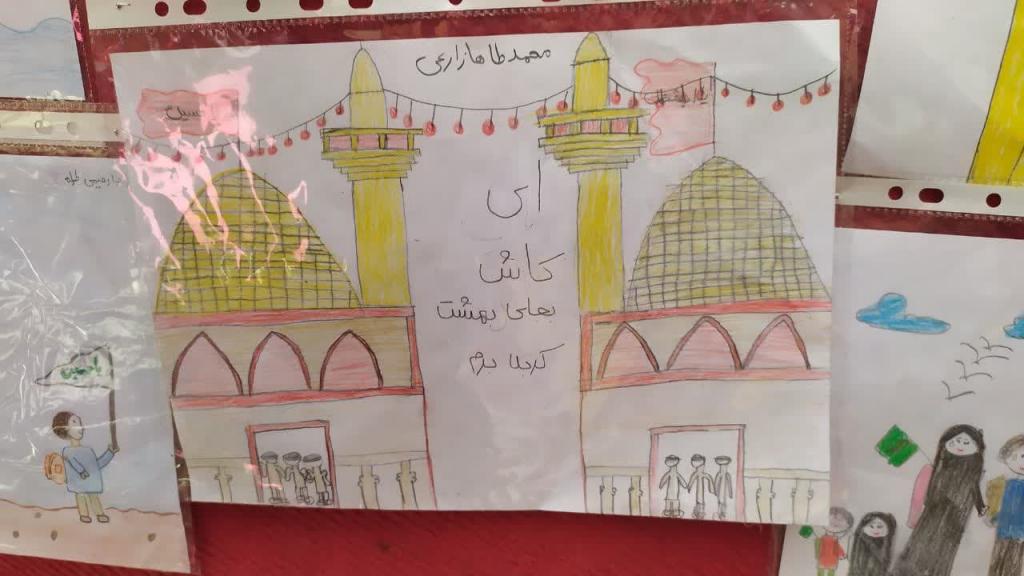 محمد طاها زارعی
ای
کاش
بجای بهشت
کربلا برم